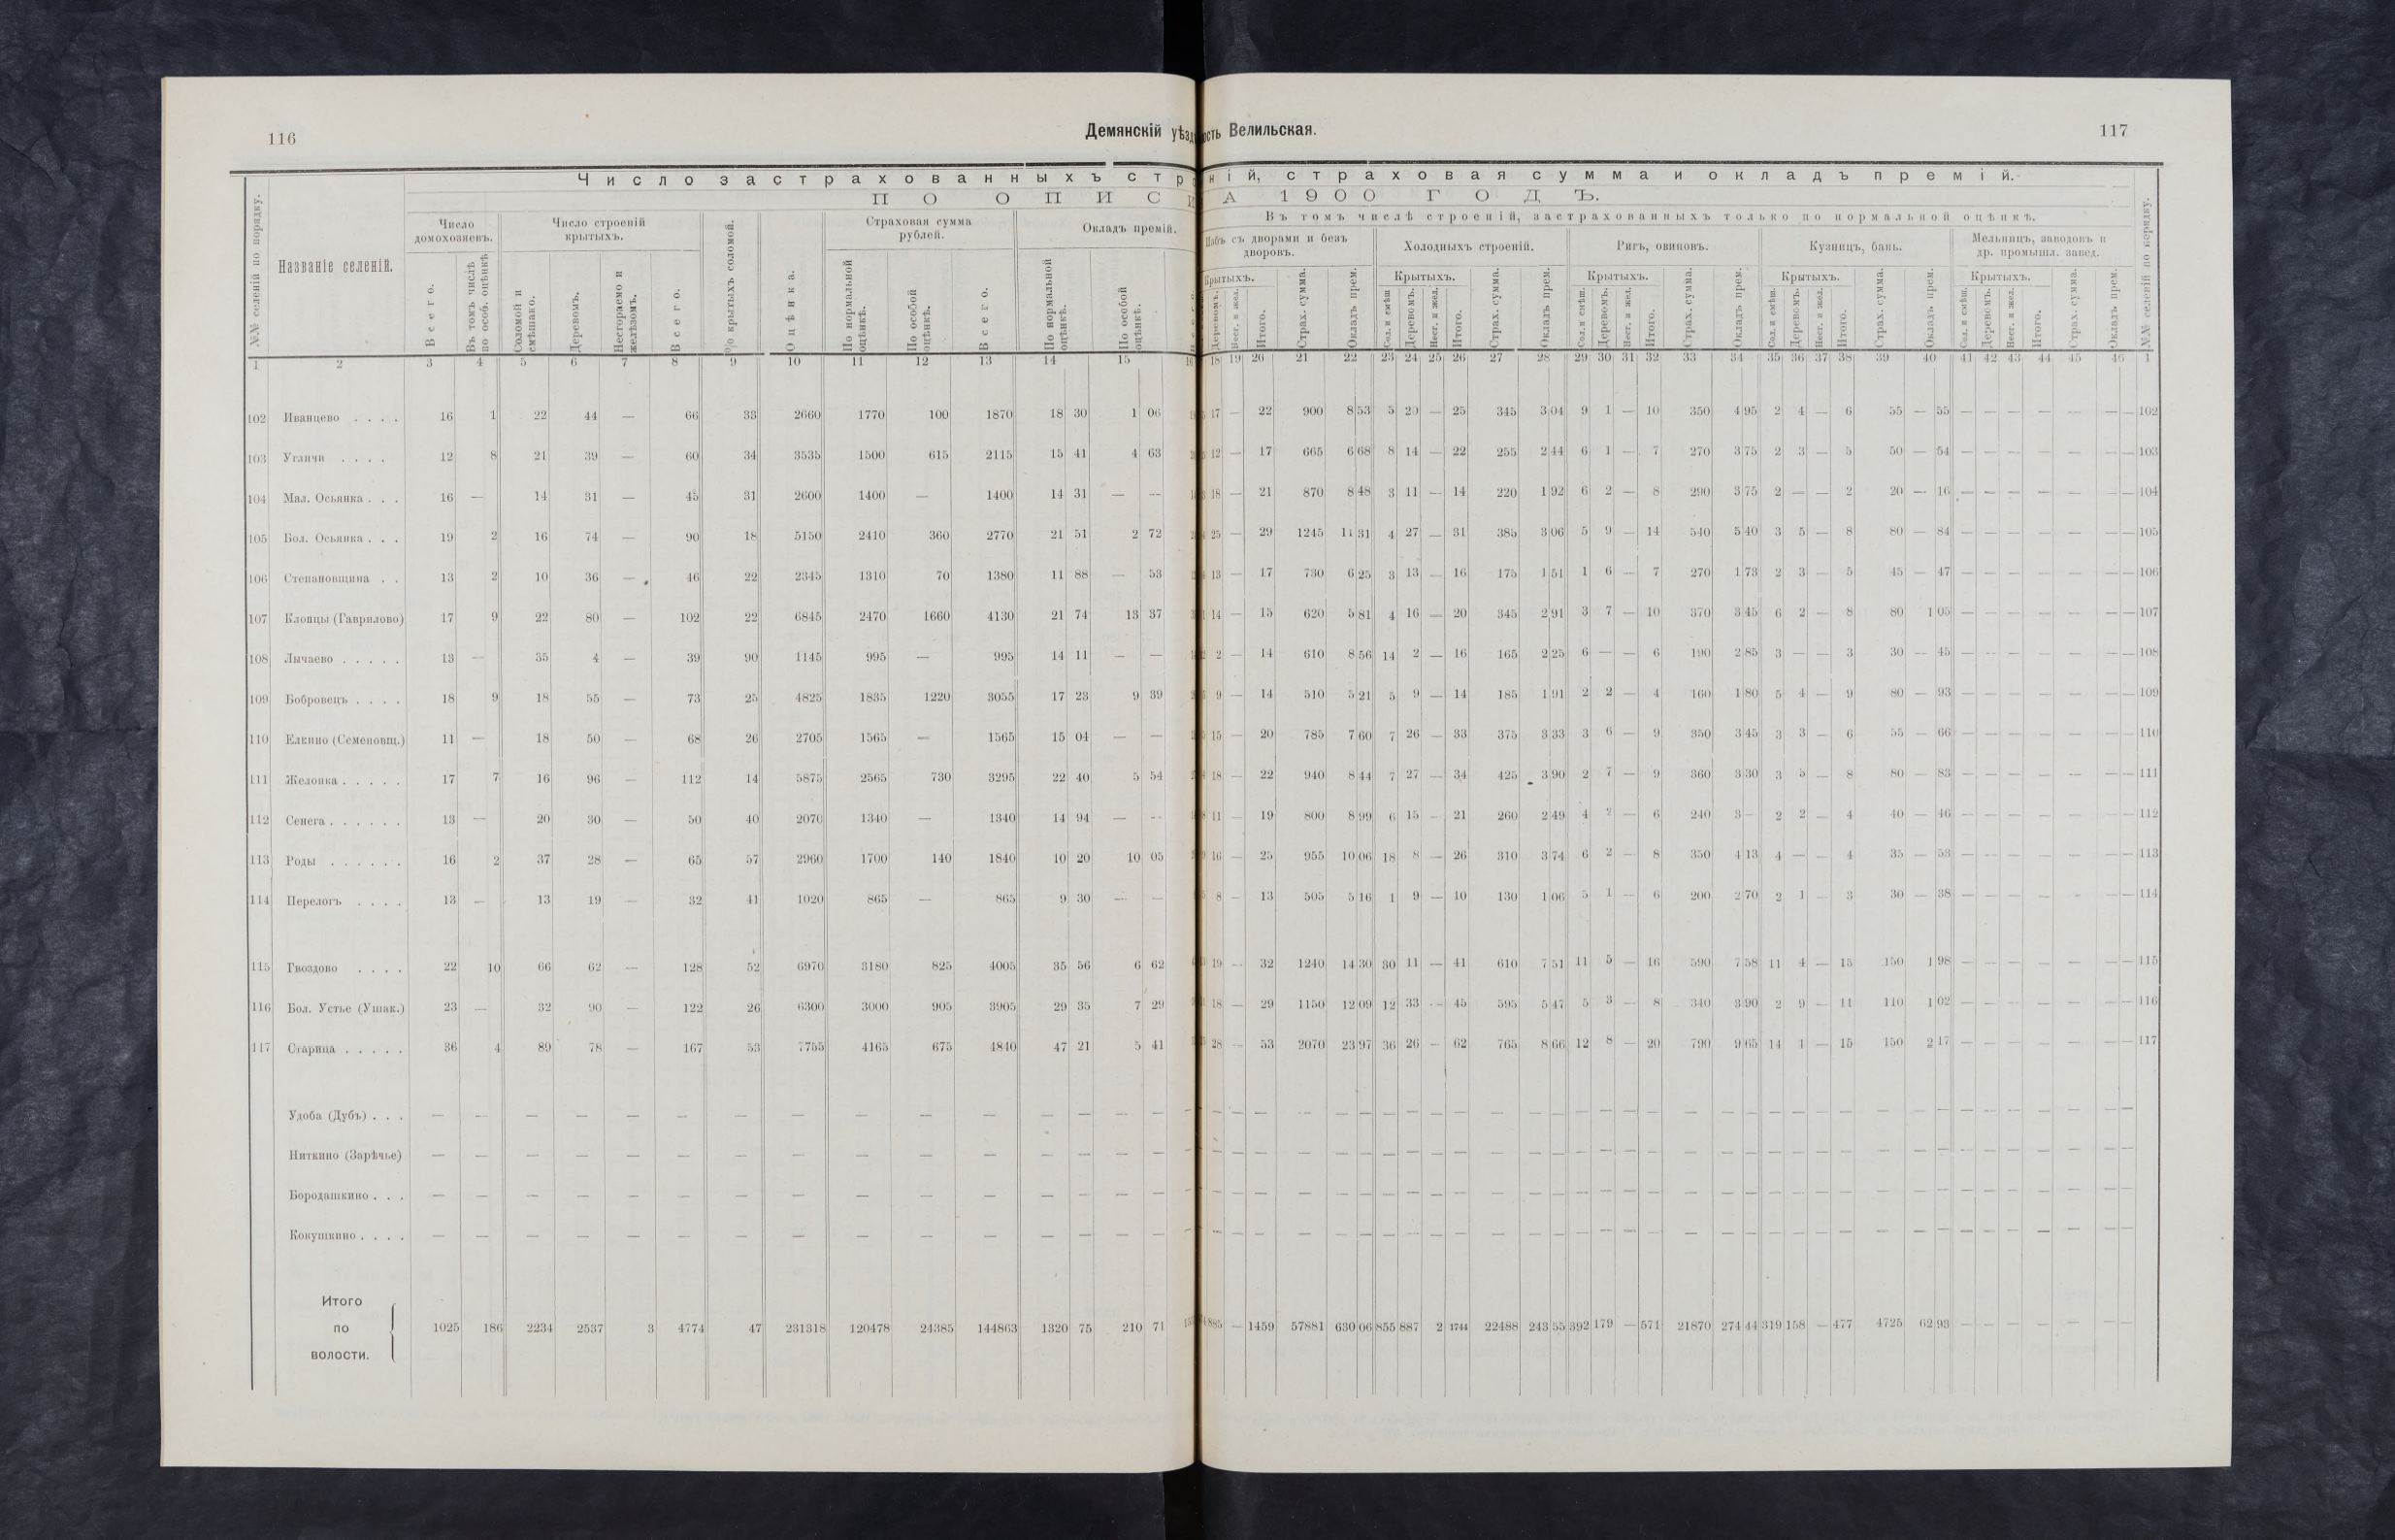 116
Демянскій уѣзд
ость Велильская.
117
Число застрахованныхъ стр
ній, страховая сумма и окладъ премій.
ПО ОПИС
А 1900 ГОДЪ.
Въ томъ числѣ строеній, застрахованныхъ только по нормальной оцѣнкѣ.
№№ селеній по порядку.
Названіе селеній.
Число домохозяевъ.
Число строеній крытыхъ.
% крытыхъ соломой.
Оцѣнка.
Страховая сумма рублей.
Окладъ премій.
Избъ съ дворами и безъ дворовъ.
Холодныхъ строеній.
Ригъ, овиновъ.
Кузницъ, бань.
Мельницъ, заводовъ и др. промышл. завед.
№№ селеній по порядку.
Всего.
Въ томъ числѣ по особ. оцѣнкѣ
Соломой и смѣшано.
Деревомъ.
Несгораемо и желѣзомъ.
Всего.
По нормальной оцѣнкѣ.
По особой оцѣнкѣ.
Всего.
По нормальной оцѣнкѣ.
По особой оцѣнкѣ.
Крытыхъ. Деревомъ. Несг. и жел. Итого. Страх. сумма. Окладъ прем.
Крытыхъ. Сол. и смѣш Деревомъ. Несг. и жел. Итого. Страх. сумма. Окладъ прем.
Крытыхъ. Сол. и смѣш. Деревомъ. Несг. и жел. Итого. Страх. сумма. Окладъ прем.
Крытыхъ. Сол. и смѣш. Деревомъ. Несг. и жел. Итого. Страх. сумма. Окладъ прем.
Крытыхъ. Сол. и смѣш. Деревомъ. Несг. и жел. Итого. Страх. сумма. Окладъ прем.
1 2 3 4 5 6 7 8 9 10 11 12 13 14 15 18 19 20 21 22 23 24 25 26 27 28 29 30 31 32 33 34 35 36 37 38 39 40 41 42 43 44 45 46 1
102 Иванцево . . . . 16 1 22 44 — 66 33 2660 1770 100 1870 18 30 1 06 17 — 22 900 8 53 5 20 — 25 345 3 04 9 1 — 10 350 4 95 2 4 — 6 55 — 55 — — — — — — — 102
103 Уганчи . . . . 12 8 21 39 — 60 34 3535 1500 615 2115 15 41 4 63 12 — 17 665 6 68 8 14 — 22 255 2 44 6 1 — 7 270 3 75 2 3 — 5 50 — 54 — — — — — — — 103
104 Мал. Осьянка . . . 16 — 14 31 — 45 31 2600 1400 — 1400 14 31 — — 18 — 21 870 8 48 3 11 — 14 220 1 92 6 2 — 8 290 3 75 2 — — 2 20 — 16 — — — — — — — 104
105 Бол. Осьянка . . . 19 2 16 74 — 90 18 5150 2410 360 2770 21 51 2 72 25 — 29 1245 11 31 4 27 — 31 385 3 06 5 9 — 14 540 5 40 3 5 — 8 80 — 84 — — — — — — — 105
106 Степановщина . . 13 2 10 36 — 46 22 2345 1310 70 1380 11 88 — 53 13 — 17 730 6 25 3 13 — 16 175 1 51 1 6 — 7 270 1 73 2 3 — 5 45 — 47 — — — — — — — 106
107 Клопцы (Гаврилово) 17 9 22 80 — 102 22 6845 2470 1660 4130 21 74 13 37 14 — 15 620 5 81 4 16 — 20 345 2 91 3 7 — 10 370 3 45 6 2 — 8 80 1 05 — — — — — — — 107
108 Лычаево . . . . . 13 — 35 4 — 39 90 1145 995 — 995 14 11 — — 2 — 14 610 8 56 14 2 — 16 165 2 25 6 — — 6 190 2 85 3 — — 3 30 — 45 — — — — — — — 108
109 Бобровецъ . . . . 18 9 18 55 — 73 25 4825 1835 1220 3055 17 23 9 39 9 — 14 510 5 21 5 9 — 14 185 1 91 2 2 — 4 160 1 80 5 4 — 9 80 — 93 — — — — — — — 109
110 Елкино (Семеновщ.) 11 — 18 50 — 68 26 2705 1565 — 1565 15 04 — — 15 — 20 785 7 60 7 26 — 33 375 3 33 3 6 — 9 350 3 45 3 3 — 6 55 — 66 — — — — — — — 110
111 Желонка . . . . . 17 7 16 96 — 112 14 5875 2565 730 3295 22 40 5 54 18 — 22 940 8 44 7 27 — 34 425 3 90 2 7 — 9 360 3 30 3 5 — 8 80 — 83 — — — — — — — 111
112 Сенега . . . . . . 13 — 20 30 — 50 40 2070 1340 — 1340 14 94 — — 11 — 19 800 8 99 6 15 — 21 260 2 49 4 2 — 6 240 3 — 2 2 — 4 40 — 46 — — — — — — — 112
113 Роды . . . . . . 16 2 37 28 — 65 57 2960 1700 140 1840 10 20 10 05 16 — 25 955 10 06 18 8 — 26 310 3 74 6 2 — 8 350 4 13 4 — — 4 35 — 53 — — — — — — — 113
114 Перелогъ . . . . 13 — 13 19 — 32 41 1020 865 — 865 9 30 — — 8 — 13 505 5 16 1 9 — 10 130 1 06 5 1 — 6 200 2 70 2 1 — 3 30 — 38 — — — — — — — 114
115 Гвоздово . . . . 22 10 66 62 — 128 52 6970 3180 825 4005 35 56 6 62 19 — 32 1240 14 30 30 11 — 41 610 7 51 11 5 — 16 590 7 58 11 4 — 15 150 1 98 — — — — — — — 115
116 Бол. Устье (Ушак.) 23 — 32 90 — 122 26 6300 3000 905 3905 29 35 7 29 18 — 29 1150 12 09 12 33 — 45 595 5 47 5 3 — 8 340 3 90 2 9 — 11 110 1 02 — — — — — — — 116
117 Старица . . . . . 36 4 89 78 — 167 53 7755 4165 675 4840 47 21 5 41 28 — 53 2070 23 97 36 26 — 62 765 8 66 12 8 — 20 790 9 65 14 1 — 15 150 2 17 — — — — — — — 117
Удоба (Дубъ) . . . — — — — — — — — — — — — — — —
Ниткино (Зарѣчье) — — — — — — — — — — — — — — —
Бородашкино . . . — — — — — — — — — — — — — — —
Кокушкино . . . . — — — — — — — — — — — — — — —
Итого
по
волости.
1025 186 2234 2537 3 4774 47 231318 120478 24385 144863 1320 75 210 71 885 — 1459 57881 630 06 855 887 2 1744 22488 243 55 392 179 — 571 21870 274 44 319 158 — 477 4725 62 93 — — — — — — —